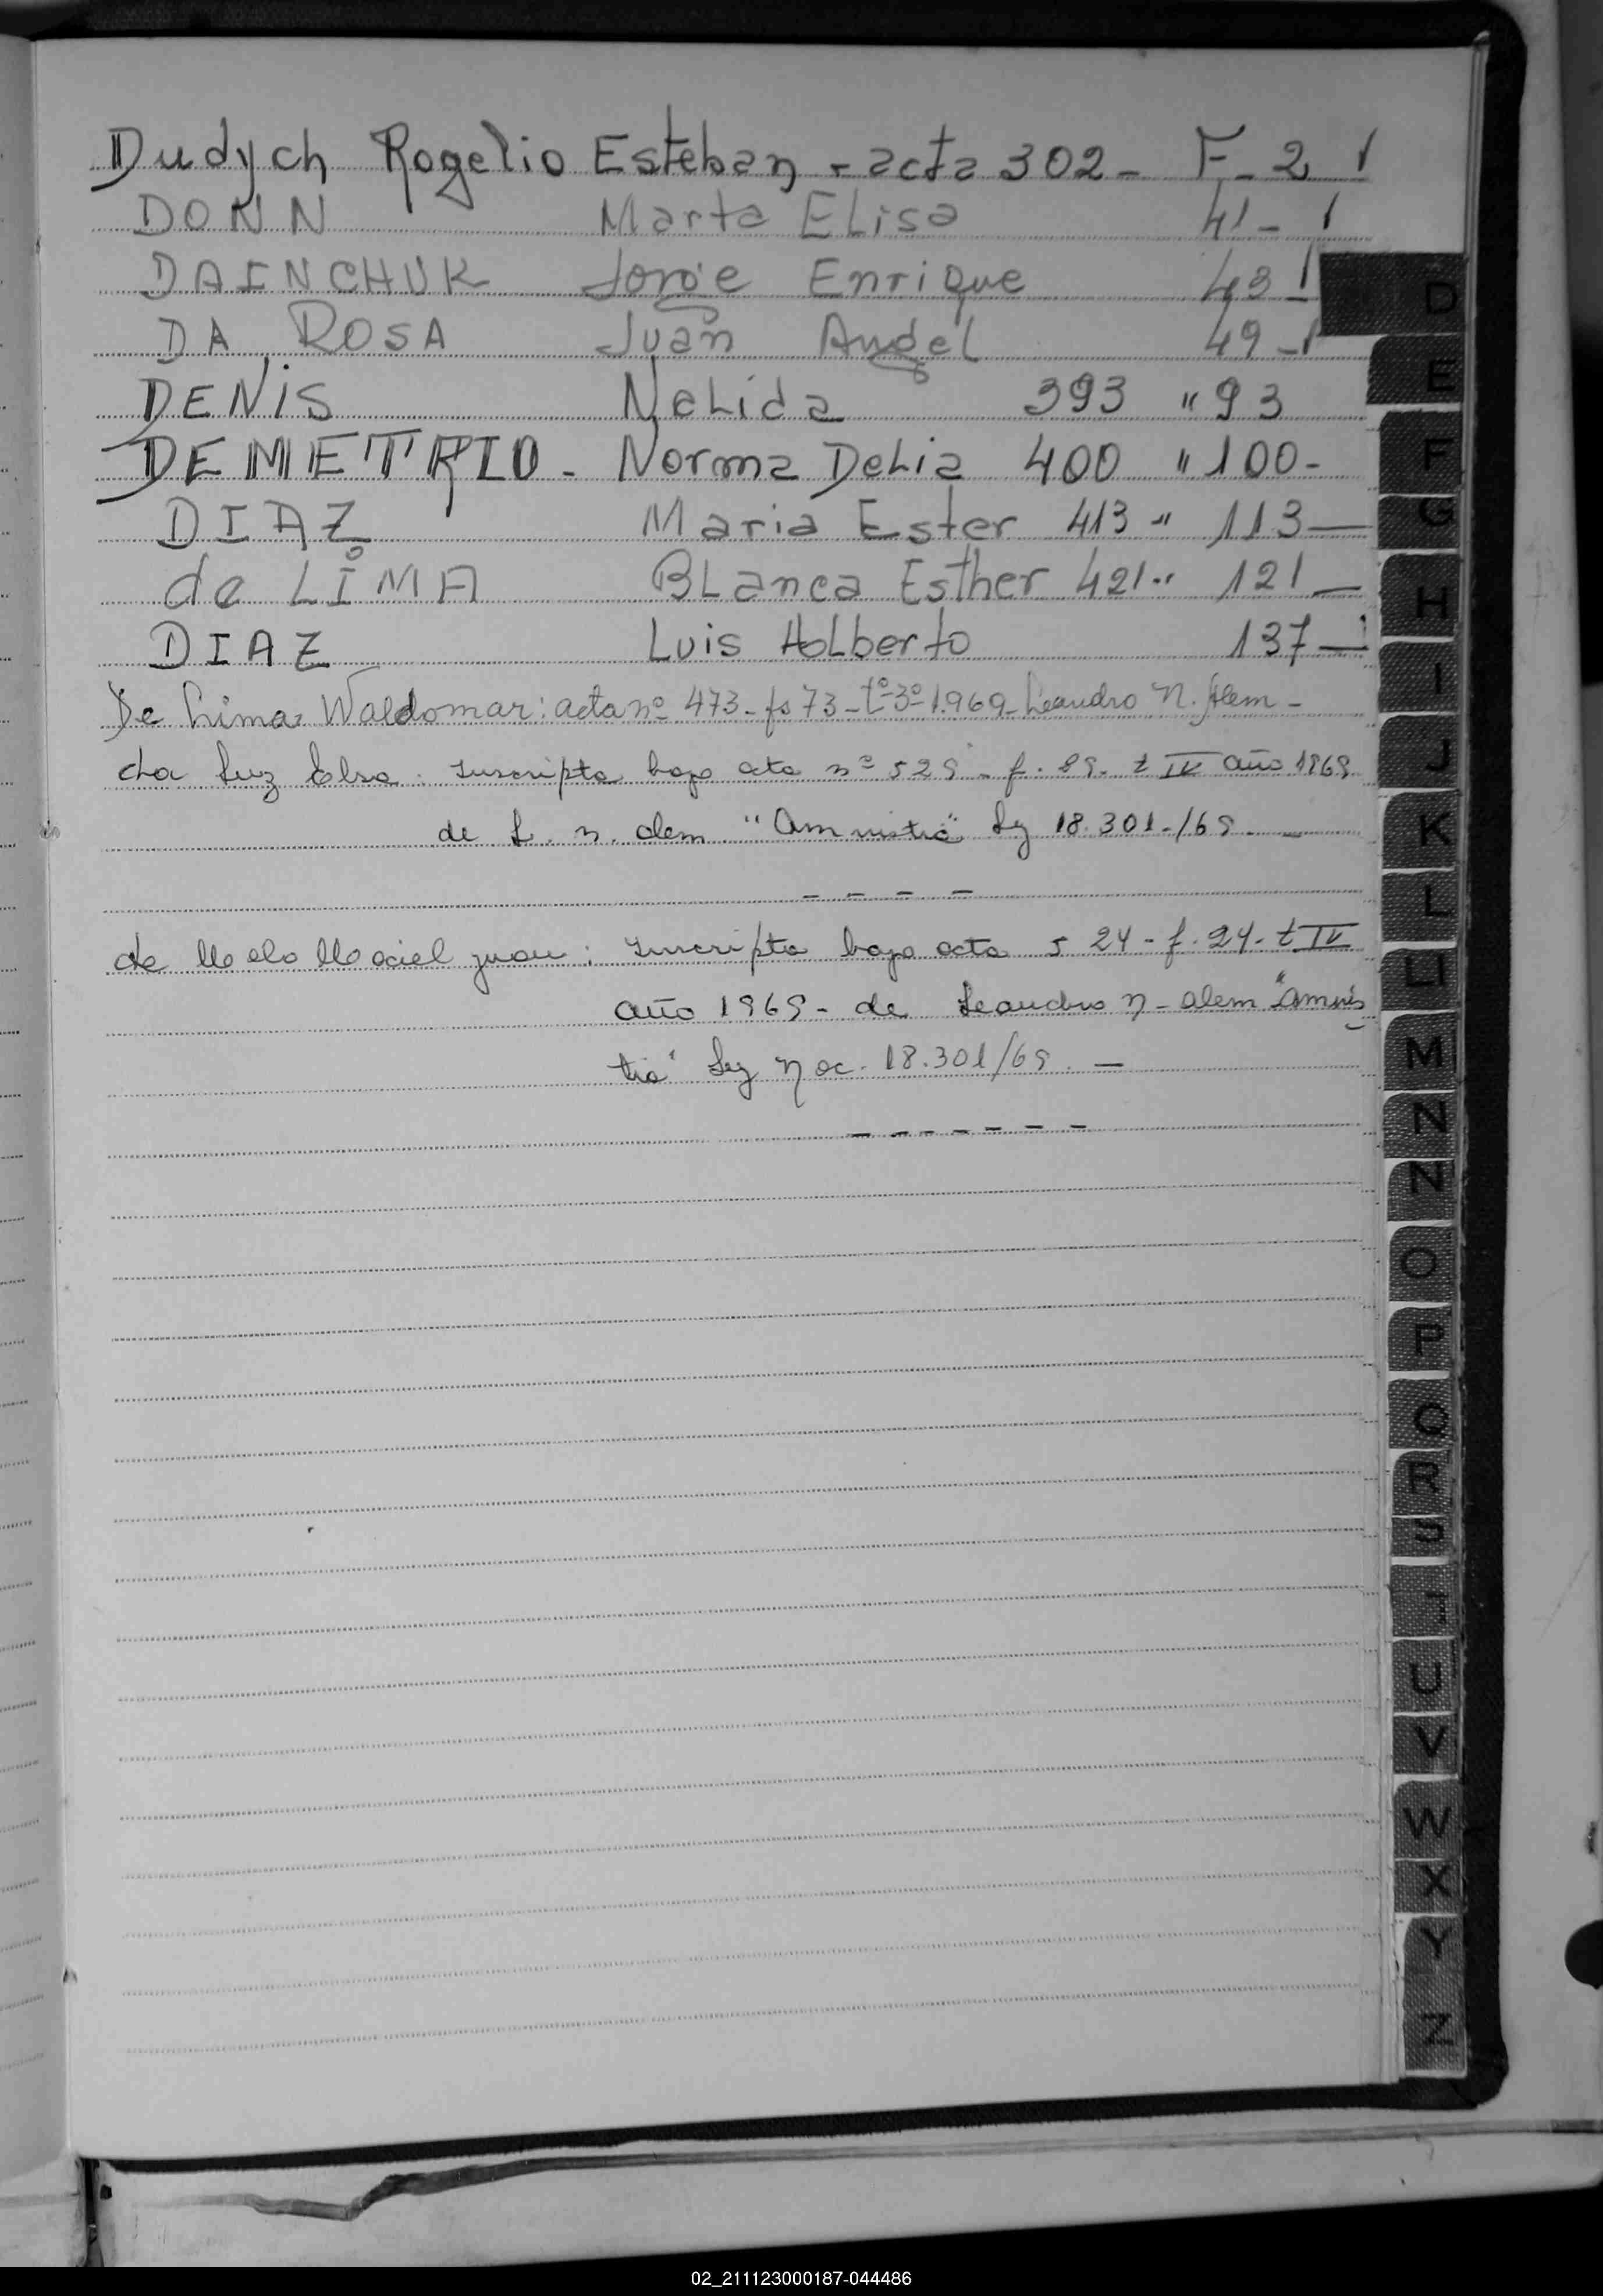 Dudych Rogelio Esteban - acta 302 - F - 2
DONN Marta ELisa 41 -
DAINCHUK Jorge Enrique 43
DA ROSA Juan Angel 49 -
DENIS NeLida 393 " 93
DEMETRIO - Norma DeLia 400 " 100 -
DIAZ Maria Ester 413 " 113 —
de LIMA BLanca Esther 421 " 121 —
DIAZ Luis AdLberto 137 —
De Lima Waldomar: acta nº 473 - fs 73 - tº 3º 1.969 - Leandro N. Alem -
da Luz Elsa : Inscripta bajo acta nº 529 - f. 29. t IV año 1969
de L. n. alem "Amnistia" Ley 18.301 -/69. —
- - - -
de Melo Maciel juan : Inscripta bajo acta 524 - f. 24 - t IV
año 1969 - de Leandro n - alem "amnis
tia" Ley nac. 18.301/69. —
- - - - - - -
D
E
F
G
H
I
J
K
L
Ll
M
N
Ñ
O
P
Q
R
S
T
U
V
W
X
Y
Z
02_211123000187-044486